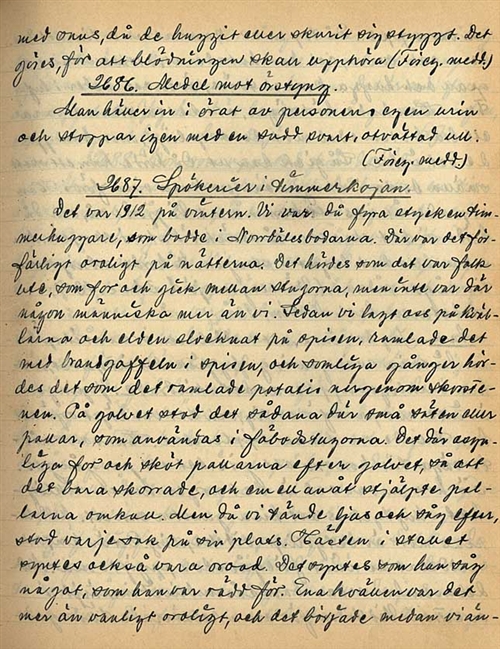 med snus, då de huggit eller skurit sig styggt. Det
göres, för att blödningen skall upphöra (Föreg. medd.)
2686. Medel mot örsprång.
Man häller in i örat av personens egen urin
och stoppar igen med en sudd svart, otvättad ull.
(Föreg. medd.)
2687. Spökerier i timmerkojan.
Det var 1912 på vintern. Vi var då fyra stycken tim-
merhuggare, som bodde i Norrbälesbodarna. Där var det för-
färligt oroligt på nätterna. Det hördes som det var folk
ute, som for och gick mellan stugorna, men inte var där
någon människa mer än vi. Sedan vi lagt oss på kväl-
larna och elden slocknat på spisen, ramlade det
med brandgaffeln i spisen, och somliga gånger hör-
des det som det ramlade potatis nergenom skorste-
nen. På golvet stod det sådana där små säten eller
pallar, som användas i fäbodstugorna. Det där osyn-
liga for och sköt pallarna efter golvet, så att
det bara skorrade, och em ellanåt stjälpte pal-
larna omkull. Men då vi tände ljus och såg efter,
stod varje sak på sin plats. Hästen i stallet
syntes också vara orood. Det syntes som han såg
något, som han var rädd för. Ena kvällen var det
mer än vanligt oroligt, och det började medan vi än-